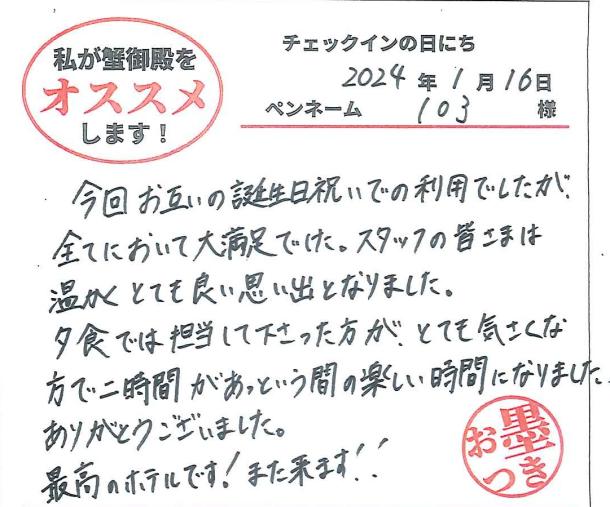 私が蟹御殿を
オススメ
します！
チェックインの日にち
2024年1月16日
ペンネーム 103 様
今回お互いの誕生日祝いでの利用でしたが、
全てにおいて大満足でした。スタッフの皆さまは
温かくとても良い思い出となりました。
夕食では担当して下さった方が、とても気さくな
方で二時間があっという間の楽しい時間になりました。
ありがとうございました。
最高のホテルです！また来ます！！
お墨
つき